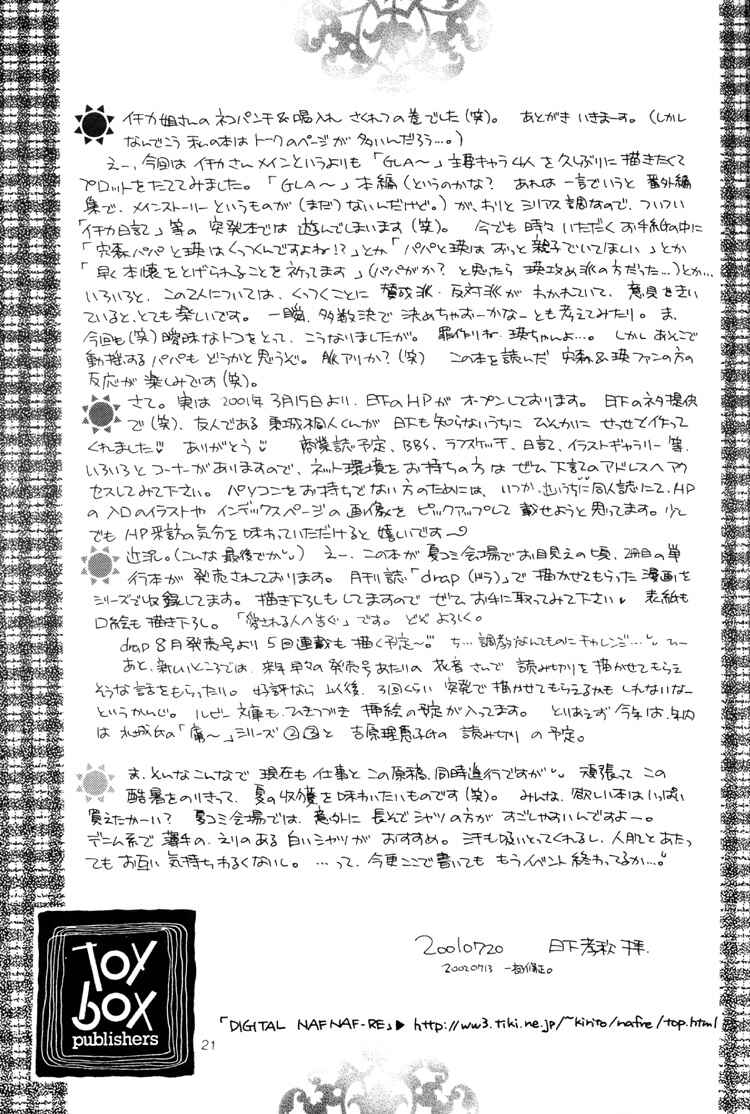 イチカ姐さんのネコパンチ&喝入れ さくれつの巻でした(笑)。 あとがき いきまーす。(しかし
なんでこう 私の本は トークのページが 多いんだろう…。)
えー、今回は イチカさん メインというよりも「GLA〜」主要キャラ4人 を 久しぶりに 描きたくて
プロットをたててみました。「GLA〜」本編(というのかな? あれは 一言でいうと 番外編
集で、メインストーリーというものが(まだ)ないんだけど。)が、わりと シリアス調なので、ついつい
「イチカ日記」等の 突発本では 遊んでしまいます(笑)。 今でも 時々 いただく お手紙の中に
「宍森パパと瑛はくっつくんですよね!?」とか「パパと瑛は ずっと 親子でいてほしい」とか
「早く 本懐をとげられることを 祈ってます」(パパがか? と思ったら 瑛攻め派の方だった…)とか…
いろいろと、この2人については、くっつくことに 賛成派・反対派が わかれていて、意見をきい
ていると、とても 楽しいです。 一瞬、多数決で 決めちゃおーかなーとも 考えてみたり。 ま、
今回も(笑) 曖昧なトコをとって、こうなりましたが。 罪作りね 瑛ちゃんよ…。 しかし あそこで
動揺する パパも どうかと思うぞ。 脈アリか?(笑) この本を読んだ 宍森&瑛ファンの方の
反応が 楽しみです(笑)。
さて。実は 2001年 3月15日より、日下のHPが オープンしております。 日下のネタ提供
で(笑)、友人である 東城桐人くんが 日下も知らないうちに ひそかに せっせと作って
くれました ありがとう 商業誌予定、BBS、ラフスケッチ、日記、イラストギャラリー 等、
いろいろと コーナーがありますので、ネット環境をお持ちの方は ぜひ 下記のアドレスへ アク
セスしてみて下さい。 パソコンをお持ちでない方のためには、いつか 近いうちに 同人誌にて、HP
の 入口のイラストや インデックスページの 画像を ピックアップして 載せようと 思ってます。少し
でも HP来訪の気分を 味わっていただけると 嬉しいです〜
近況。(こんな 最後でか) えー、この本が 夏コミ会場で お目見えの頃、2冊目の単
行本が 発売されております。 月刊誌「drap(ドラ)」で 描かせてもらった 漫画を
シリーズで収録してます。 描き下ろしも してますので ぜひ お手に取ってみて下さい 表紙も
口絵も 描き下ろし。「愛される人へ告ぐ」です。 どぞ よろしく。
drap 8月発売号より 5回連載も 描く予定〜 ち…調教なんてものに チャレンジ…
あと、新しいところでは、来年早々の 発売号あたりの 花音 さんで 読み切りを 描かせてもらえ
そうな 話をもらったり。 好評なら 以後、3回くらい 突発で 描かせてもらえるかも しれないなー
というかんじ。 ルビー文庫も ひきつづき 挿絵の予定が 入ってます。 とりあえず 今年は、年内
は 氏の「痛〜」シリーズ ②③と 吉原理恵子氏の 読み切り の予定。
ま、そんなこんなで 現在も 仕事と この原稿、同時進行ですが 頑張って この
酷暑をのりきって、夏の収穫を 味わいたいものです(笑)。 みんな、欲しい本は いっぱい
買えたかーい? 夏コミ会場では、意外に 長そでシャツの方が すごしやすいんですよー。
デニム系で 薄手の、えりのある 白いシャツが おすすめ。 汗も吸いとってくれるし、人肌とあたっ
てもお互い 気持ちわるくないし。 …って、今更ここで書いても もうイベント終わってるか…。
20010720 日下孝秋 拝.
20020713 一部修正。
Toy
box
publishers
「DIGITAL NAFNAF-RE」▶ http://ww3.tiki.ne.jp/~kirito/nafre/top.html
21